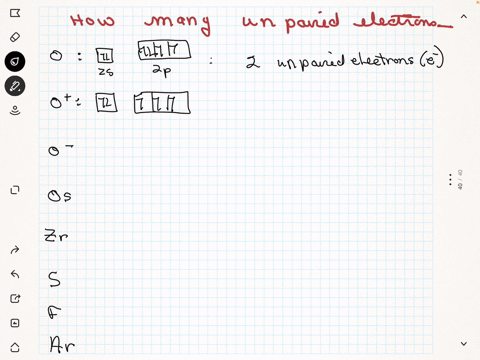 How many unpaired electrons
O : 2s 2p : 2 unpaired electrons (e⁻)
O⁺ :
O⁻
Os
Zr
S
F
Ar